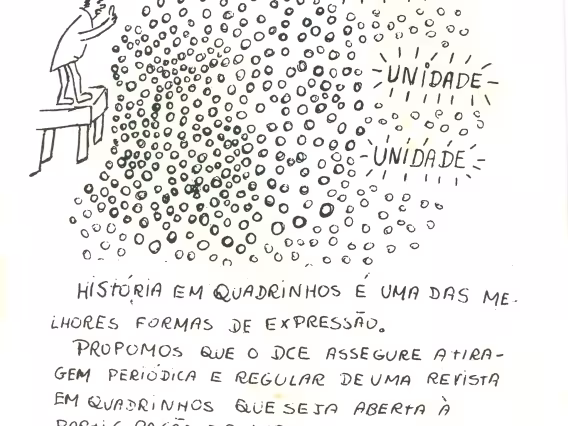 UNIDADE
UNIDADE
HISTÓRIA EM QUADRINHOS É UMA DAS ME-
LHORES FORMAS DE EXPRESSÃO.
PROPOMOS QUE O DCE ASSEGURE A TIRA-
GEM PERIÓDICA E REGULAR DE UMA REVISTA
EM QUADRINHOS QUE SEJA ABERTA À